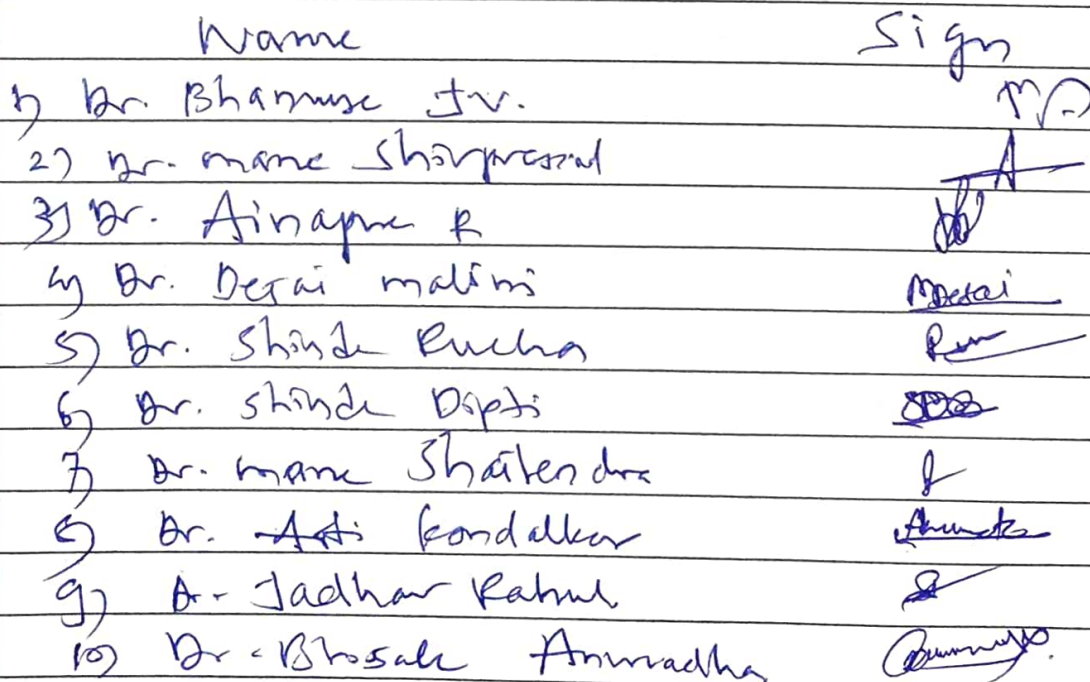 Name Sign
1) Dr. Bhanuse J.V.
2) Dr. mane Shivprasad
3) Dr. Ainapure R
4) Dr. Desai malini MDesai
5) Dr. Shinde Rucha
6) Dr. Shinde Dipti
7) Dr. mane Shailendra
8) Dr. Arti Kondalkar
9) Dr. Jadhav Rahul
10) Dr. Bhosale Anuradha